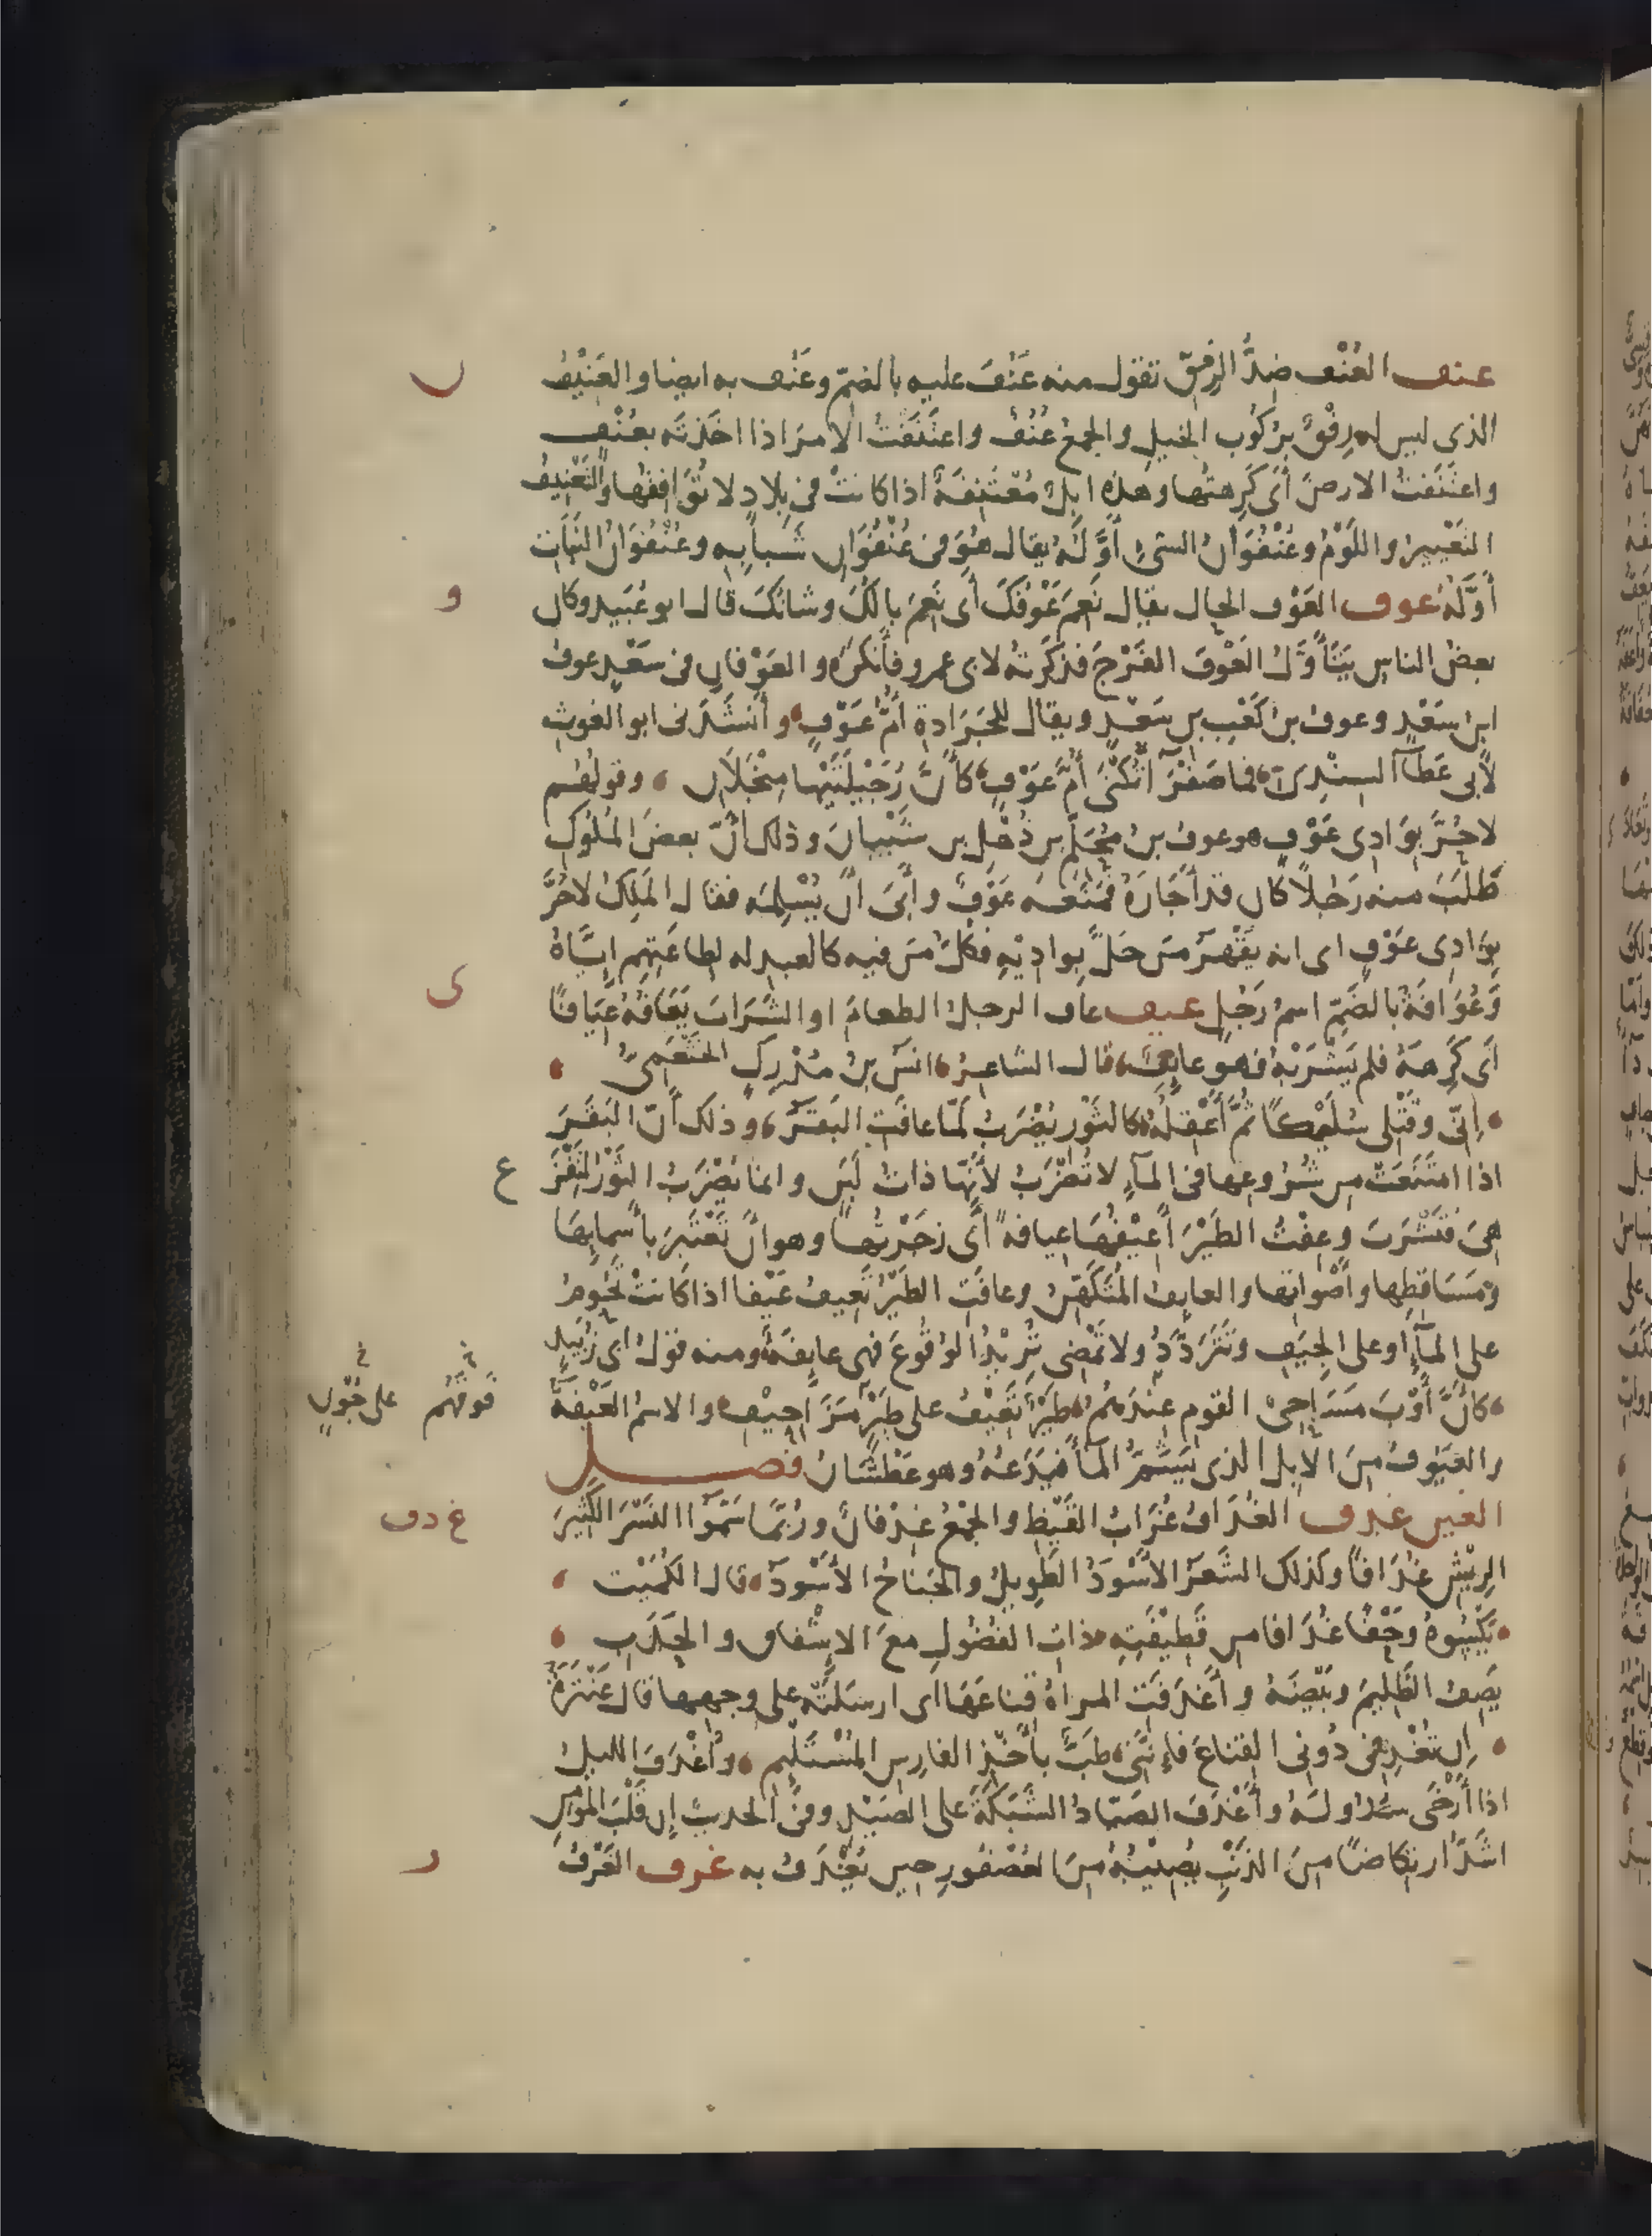 عنف العُنْف ضِدُّ الرِفقِ تقول منه عَنُفَ عليه بالضمّ وعَنُف به ايضا والعَنِيْفُ
الذى ليس له رِفْقٌ برُكُوب الخيلِ والجمعُ عُنُفٌ واعتَنَفْتُ الامرَ اذا اخَذتَه بعُنْفٍ
واعتَنَفتُ الارضَ أَى كَرِهتُها وهذه ابِلٌ مُعْتَنِفَةٌ اذا كانتْ فى بِلادٍ لا تُوَافِقُها والتَعْنِيفُ
التَعْيِيرُ واللَوْمُ وعُنْفُوَانُ الشىءِ أَوَّلُهُ يقال هُوَ فى عُنْفُوَانِ شَبابِه وعُنْفُوَانُ النَبَاتِ
أَوَّلُهُ عوف العَوْف الحال يقال نَعِمَ عَوْفُكَ أَى نَعِمَ بالُكَ وشانُكَ قال ابو عُبَيد وكان
بعضُ الناسِ يَتَأَوَّلُ العَوْفَ الفَرْجَ فذكَرتُهُ لابى عمرو فأَنكَرَه والعَوْفانِ فى سَعْدٍ عوفُ
ابن سَعْدٍ وعوفُ بنُ كَعْبِ بن سَعْدٍ ويقال للجَرَادةِ أُمُّ عَوْفٍ وأَنشَدَنى ابو الغوثِ
لأَبى عَطَآءٍ السِنْدِىّ فما صَفْرَآءُ تُكْنَى أُمَّ عَوْفٍ كأَنَّ رُجَيْلَتَيْها مِنْجَلانِ وقولهُم
لا حُرَّ بِوَادِى عَوْفٍ هو عوفُ بنُ مُحَلِّم بن ذُهْلِ بن شَيْبانَ وذلك أَنّ بعضَ المُلُوكِ
طَلَبَ منه رَجُلاً كان قد أَجَارَهُ فمَنَعَه عَوْفٌ وأَبَى أَنْ يُسْلِمَه فقال المَلِكُ لا حُرَّ
بِوَادِى عَوْفٍ اى انه يَقْهَرُ مَن حَلَّ بِوادِيْهِ فكُلُّ مَن فيه كالعبد له لِطاعَتِهِم إِيَّاهُ
وَعُوَافَةُ بالضَمّ اسمُ رَجُلٍ عيف عاف الرجلُ الطعامَ او الشَرَابَ يَعَافُهُ عِيَافًا
أَى كَرِهَهُ فلم يَشْرَبْهُ فهو عايِفٌ قال الشاعِرُ انسُ بنُ مُدْرِكٍ الخَثْعَمِىُّ
إِنّى وقَتْلِى سُلَيْكًا ثُمَّ أَعْقِلُهُ كالثَوْرِ يُضْرَبُ لمّا عافَتِ البَقَرُ وذلك أَنّ البَقَرَ
اذا امتَنَعَتْ من شُرُوعِها فى المآءِ لا تُضْرَبُ لأَنّها ذاتُ لَبَنٍ وانما يُضْرَبُ الثَوْرُ لتَفْزَعَ
هِىَ فتَشْرَبَ وعِفْتُ الطَيْرَ أَعِيْفُها عِيافةً أَى زجَرْتُها وهو أنْ تَعْتَبِرَ بأَسمايِها
ومَسَاقِطِها وأَصْواتِها والعايِفُ المُتَكَهِّنُ وعافَتِ الطَيْرُ تَعِيفُ عَيْفا اذا كانتْ تَحُومُ
على المآءِ او على الجِيَفِ وتَتَرَدَّدُ ولا تَمْضِى تُرِيْدُ الوُقُوعَ فهى عايِفَةٌ ومنه قولُ أَبى زُبَيدٍ
كأَنَّ أَوْبَ مَسَاحِى القومِ عِنْدَهُمُ طَيْرٌ تَعِيْفُ على طَيْرٍ مَزَاحِيْفِ والاسمُ العَيْفَةُ
فوقَهُم
على جُوْنٍ
والعَيُوفُ مِنَ الابِلِ الذى يَشَمُّ المآءَ فيَدَعُهُ وهو عَطْشَانُ فصــل
الغين غدف الغُدَافُ غُرَابُ القَيْظِ والجمْعُ غِدْفانٌ ورُبَّما سَمَّوا النَسْرَ الكَثِيرَ
الرِيْشِ غُدَافًا وكذلك الشَعَرُ الأَسْوَدُ الطَوِيلُ والجَنَاحُ الأَسْوَدُ قال الكُمَيْت
يَكْسُوهُ وَحْفًا غُدَافا من قَطِيْفَتِهِ ذاتِ الفُضُولِ معَ الاِشْفاقِ والحَدَبِ
يَصِفُ الظَلِيمَ وبَيْضَهُ وأَغدَفَتِ المراةُ قناعَهَا اى ارسَلَتْه على وجهِها قال عَنْتَرَةُ
إِن تُغْدِفِى دُونِى القِناعَ فإِنَّنِى طَبٌّ بأَخْذِ الفارِسِ المُسْتَلْئِمِ وأَغْدَفَ الليلُ
اذا أَرْخَى سُدُولَهُ وأَغْدَفَ الصَيّادُ الشَبَكَةَ على الصَيْدِ وفى الحديثِ إِن قَلْبَ المؤمِنِ
اشَدُّ ارتِكاضًا مِنَ الذَنْبِ يُصِيْبُهُ مِنَ العُصْفُورِ حين يُغْدَفُ به غرف الغَرْفُ
ں
و
ى
ع
غ دف
ر